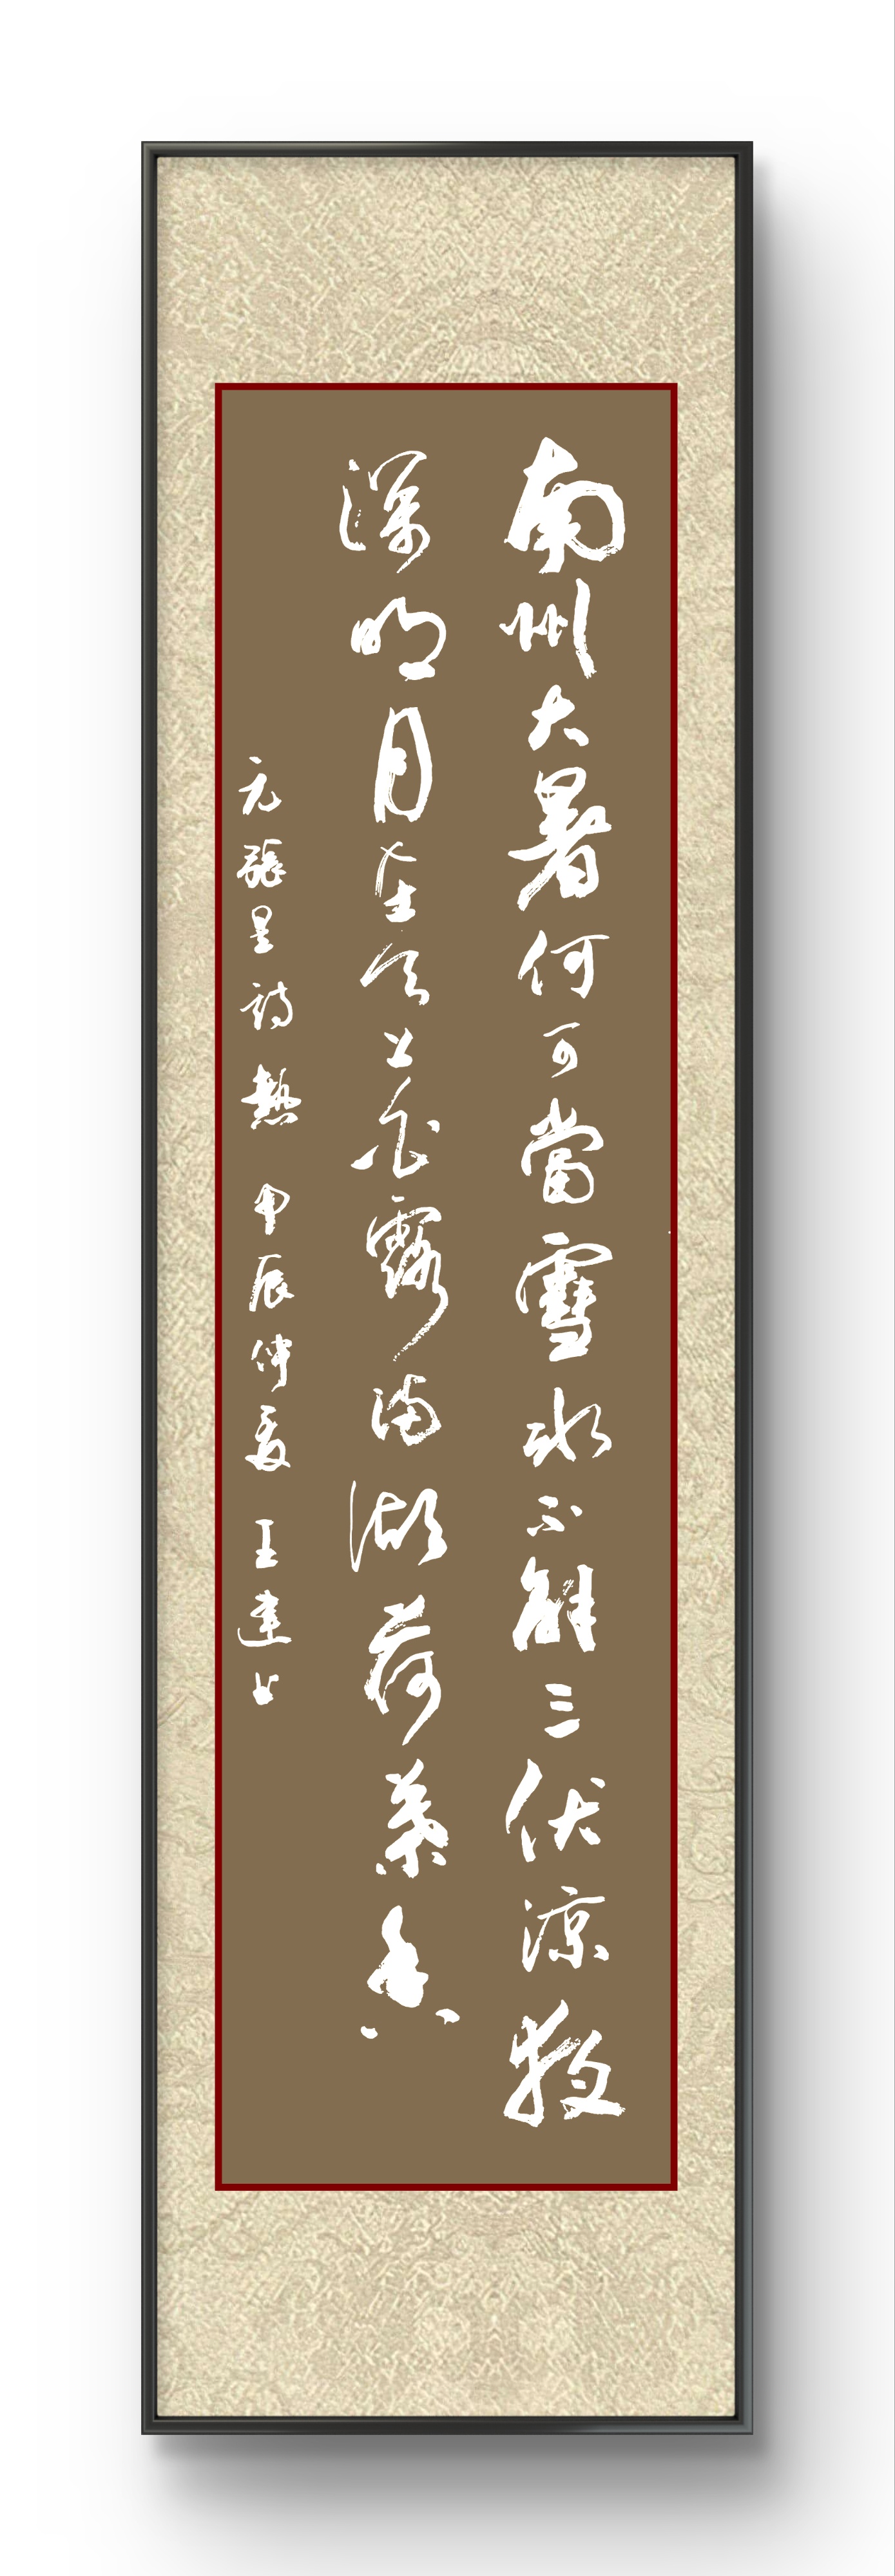 南州大暑何可當雪冰不解三伏涼夜
深明月在天上白露滿湖荷葉香
元張昱詩熱 甲辰仲夏 王建